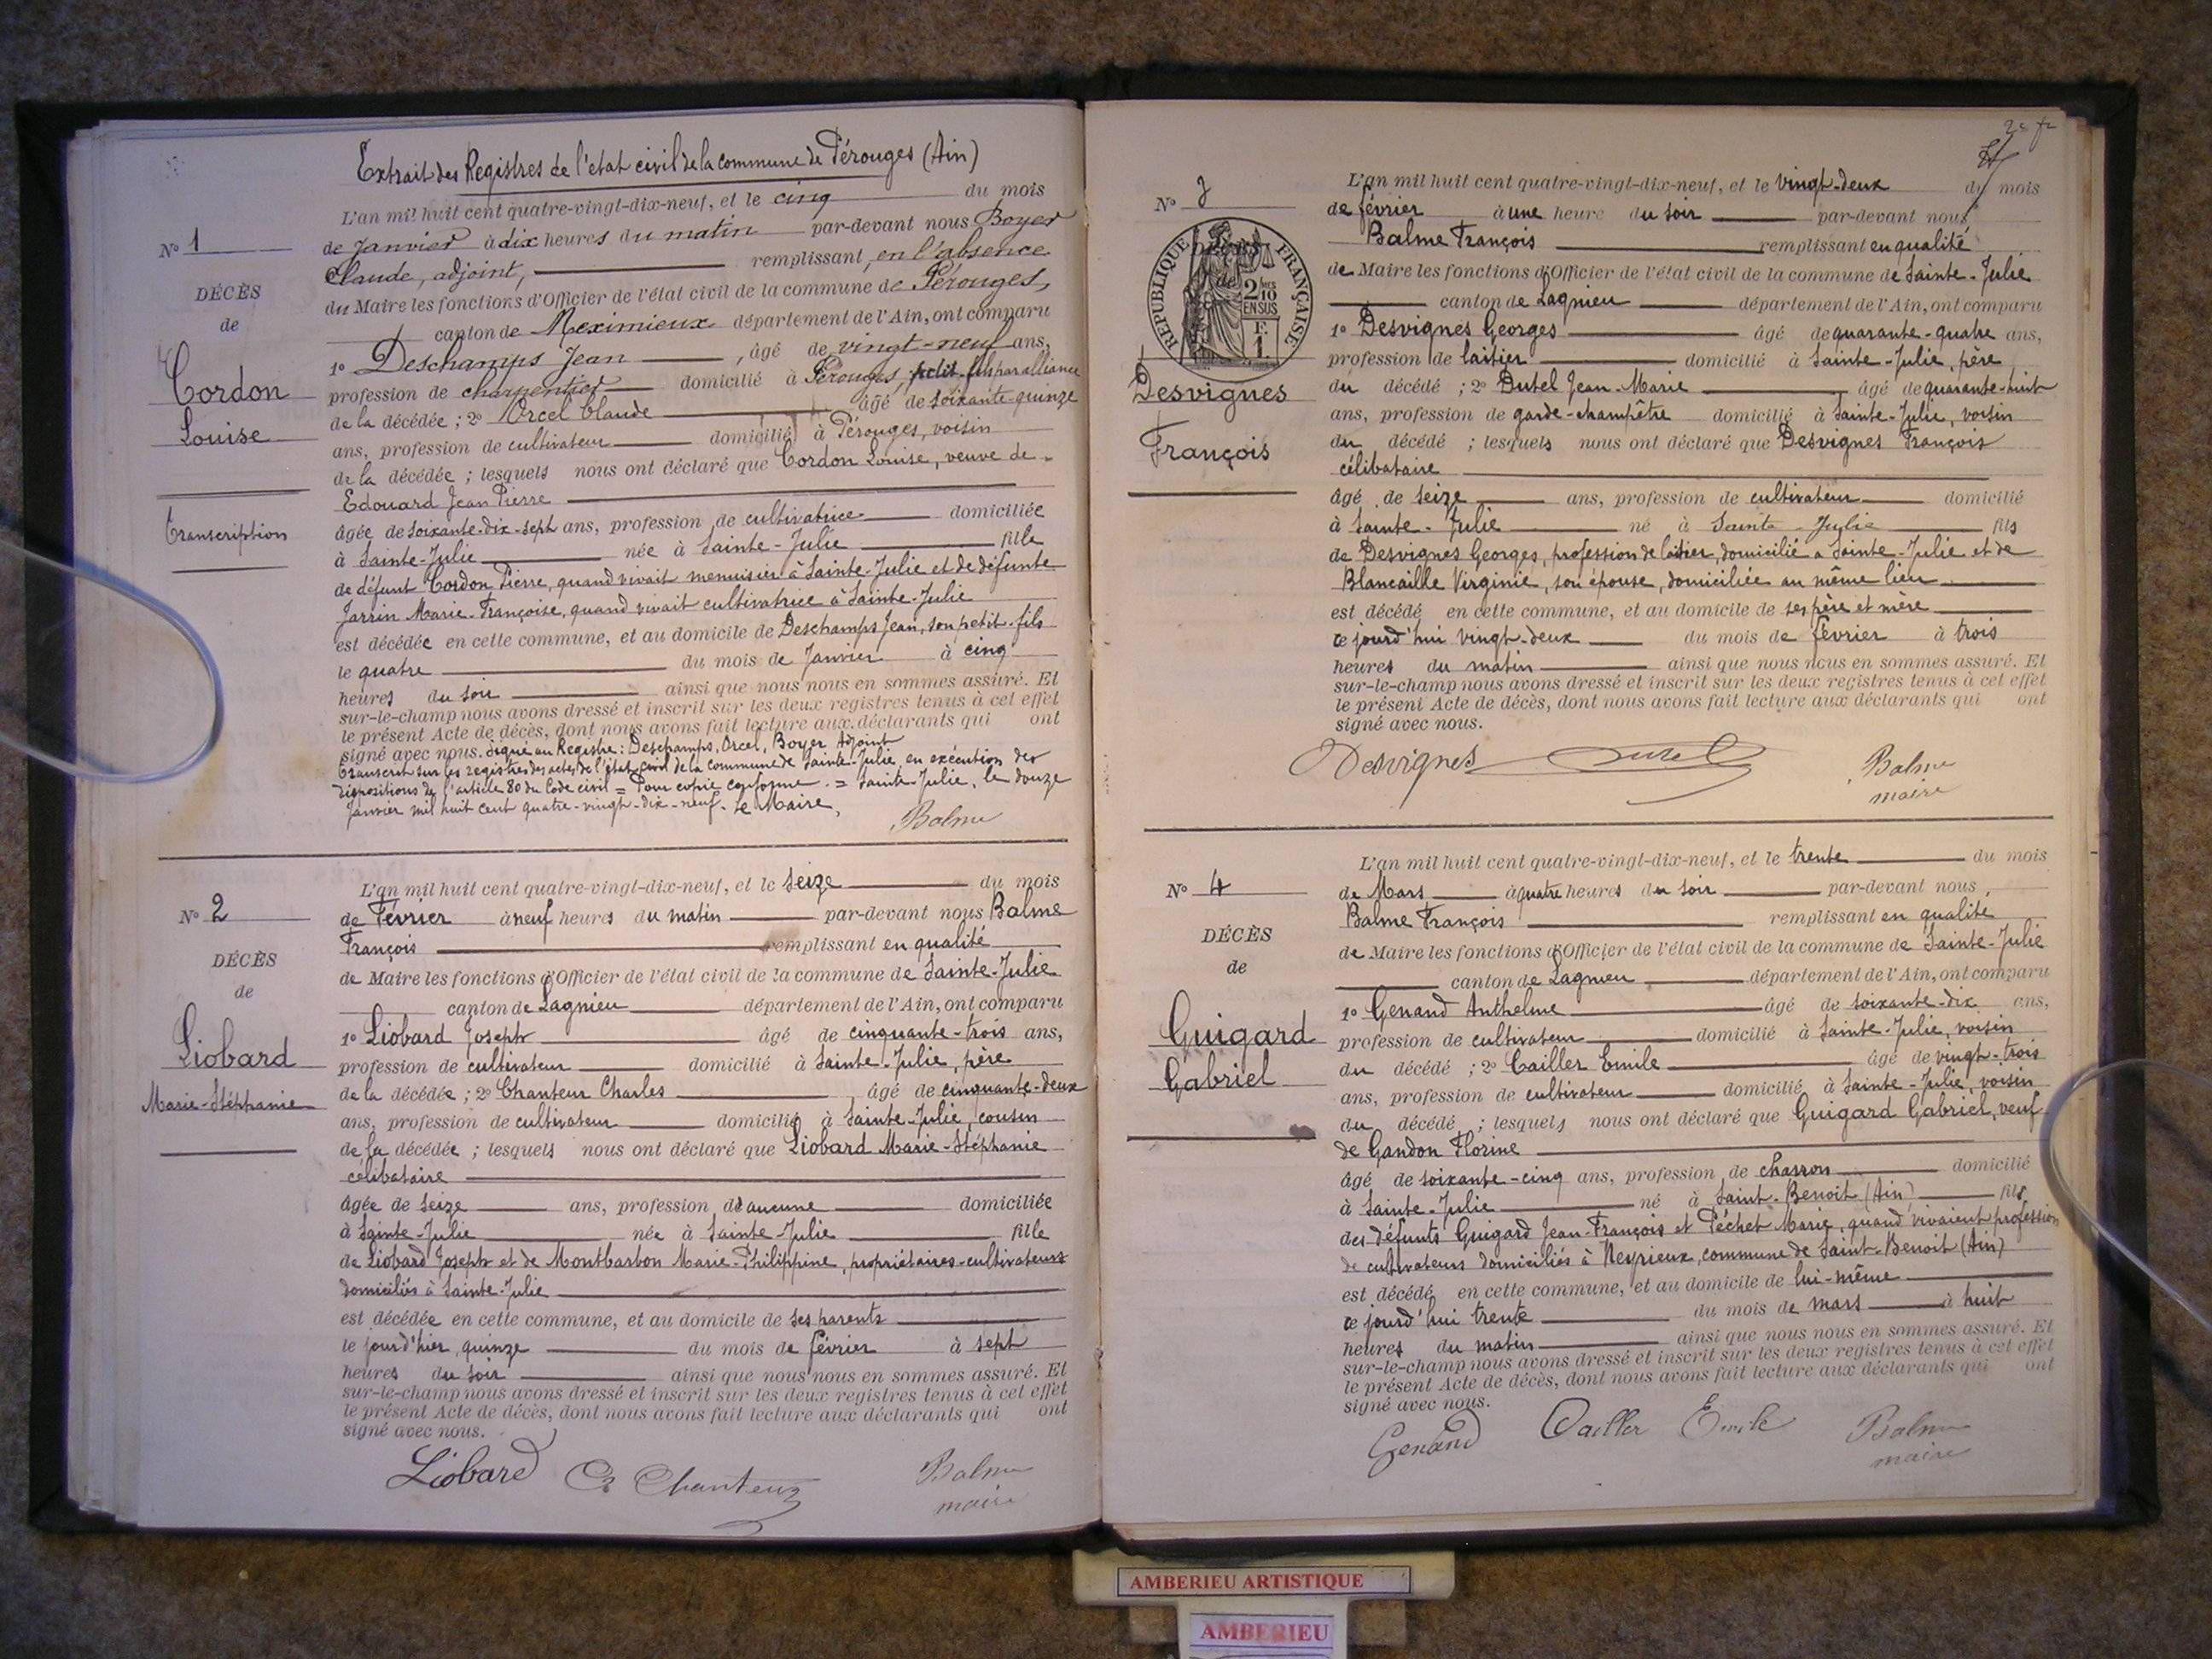 Extrait des Registres de l'état civil de la commune de Pérouges (Ain)
N° 1
DÉCÈS
de
Cordon
Louise
transcription
L'an mil huit cent quatre-vingt-dix-neuf, et le cinq du mois
de Janvier à dix heures du matin par-devant nous Boyer
Claude, adjoint, remplissant, en l'absence
du Maire les fonctions d'Officier de l'état civil de la commune de Pérouges,
canton de Meximieux département de l'Ain, ont comparu
1° Deschamps Jean, âgé de vingt-neuf ans,
profession de charpentier domicilié à Pérouges, petit-fils par alliance
de la décédée ; 2° Orcel Claude âgé de soixante-quinze
ans, profession de cultivateur domicilié à Pérouges, voisin
de la décédée ; lesquels nous ont déclaré que Cordon Louise, veuve de
Edouard Jean Pierre
âgée de soixante-dix-sept ans, profession de cultivatrice domiciliée
à Sainte-Julie née à Sainte-Julie fille
de défunt Cordon Pierre, quand vivait menuisier à Sainte-Julie et de défunte
Jarrin Marie-Françoise, quand vivait cultivatrice à Sainte-Julie
est décédée en cette commune, et au domicile de Deschamps Jean, son petit-fils
le quatre du mois de Janvier à cinq
heures du soir ainsi que nous nous en sommes assuré. Et
sur-le-champ nous avons dressé et inscrit sur les deux registres tenus à cet effet
le présent Acte de décès, dont nous avons fait lecture aux déclarants qui ont
signé avec nous. Signé au Registre : Deschamps, Orcel, Boyer Adjoint
Transcrit sur les registres des actes de l'état civil de la commune de Sainte-Julie, en exécution des
dispositions de l'article 80 du Code civil = Pour copie conforme = Sainte-Julie, le douze
Janvier mil huit cent quatre-vingt-dix-neuf. Le Maire,
Balme
N° 2
DÉCÈS
de
Liobard
Marie-Stéphanie
L'an mil huit cent quatre-vingt-dix-neuf, et le seize du mois
de Février à neuf heures du matin par-devant nous Balme
François remplissant en qualité
de Maire les fonctions d'Officier de l'état civil de la commune de Sainte-Julie
canton de Lagnieu département de l'Ain, ont comparu
1° Liobard Joseph âgé de cinquante-trois ans,
profession de cultivateur domicilié à Sainte-Julie, père
de la décédée ; 2° Chanteur Charles, âgé de cinquante-deux
ans, profession de cultivateur domicilié à Sainte-Julie, cousin
de la décédée ; lesquels nous ont déclaré que Liobard Marie-Stéphanie
célibataire
âgée de seize ans, profession d'aucune domiciliée
à Sainte-Julie née à Sainte-Julie fille
de Liobard Joseph et de Montbarbon Marie-Philippine, propriétaires-cultivateurs
domiciliés à Sainte-Julie
est décédée en cette commune, et au domicile de ses parents
le jourd'hier, quinze du mois de février à sept
heures du soir ainsi que nous nous en sommes assuré. Et
sur-le-champ nous avons dressé et inscrit sur les deux registres tenus à cet effet
le présent Acte de décès, dont nous avons fait lecture aux déclarants qui ont
signé avec nous.
Liobard Ch Chanteur Balme
maire
N° 3
RÉPUBLIQUE FRANÇAISE
DÉCÈS
de
2/10 EN SUS
F.
1.
Desvignes
François
L'an mil huit cent quatre-vingt-dix-neuf, et le vingt-deux du mois
de février à une heure du soir par-devant nous
Balme François remplissant en qualité
de Maire les fonctions d'Officier de l'état civil de la commune de Sainte-Julie
canton de Lagnieu département de l'Ain, ont comparu
1° Desvignes Georges âgé de quarante-quatre ans,
profession de laitier domicilié à Sainte-Julie, père
du décédé ; 2° Dutel Jean-Marie, âgé de quarante-huit
ans, profession de garde-champêtre domicilié à Sainte-Julie, voisin
du décédé ; lesquels nous ont déclaré que Desvignes François
célibataire
âgé de seize ans, profession de cultivateur domicilié
à Sainte-Julie né à Sainte-Julie fils
de Desvignes Georges, profession de laitier, domicilié à Sainte-Julie et de
Blancaille Virginie, son épouse, domiciliée au même lieu
est décédé en cette commune, et au domicile de ses père et mère
ce jourd'hui vingt-deux du mois de février à trois
heures du matin ainsi que nous nous en sommes assuré. Et
sur-le-champ nous avons dressé et inscrit sur les deux registres tenus à cet effet
le présent Acte de décès, dont nous avons fait lecture aux déclarants qui ont
signé avec nous.
Desvignes Dutel Balme
maire
N° 4
DÉCÈS
de
Guigard
Gabriel
L'an mil huit cent quatre-vingt-dix-neuf, et le trente du mois
de Mars à quatre heures du soir par-devant nous,
Balme François remplissant en qualité
de Maire les fonctions d'Officier de l'état civil de la commune de Sainte-Julie
canton de Lagnieu département de l'Ain, ont comparu
1° Genand Anthelme âgé de soixante-dix ans,
profession de cultivateur domicilié à Sainte-Julie, voisin
du décédé ; 2° Cailler Emile âgé de vingt-trois
ans, profession de cultivateur domicilié à Sainte-Julie, voisin
du décédé ; lesquels nous ont déclaré que Guigard Gabriel, veuf
de Gandon Florine
âgé de soixante-cinq ans, profession de charron domicilié
à Sainte-Julie né à Saint-Benoit (Ain) fils
des défunts Guigard Jean-François et Péchet Marie, quand vivaient profession
de cultivateurs domiciliés à Neyrieux, commune de Saint-Benoit (Ain)
est décédé en cette commune, et au domicile de lui-même
ce jourd'hui trente du mois de mars à huit
heures du matin ainsi que nous nous en sommes assuré. Et
sur-le-champ nous avons dressé et inscrit sur les deux registres tenus à cet effet
le présent Acte de décès, dont nous avons fait lecture aux déclarants qui ont
signé avec nous.
Genand Cailler Emile Balme
maire
AMBERIEU ARTISTIQUE
AMBERIEU